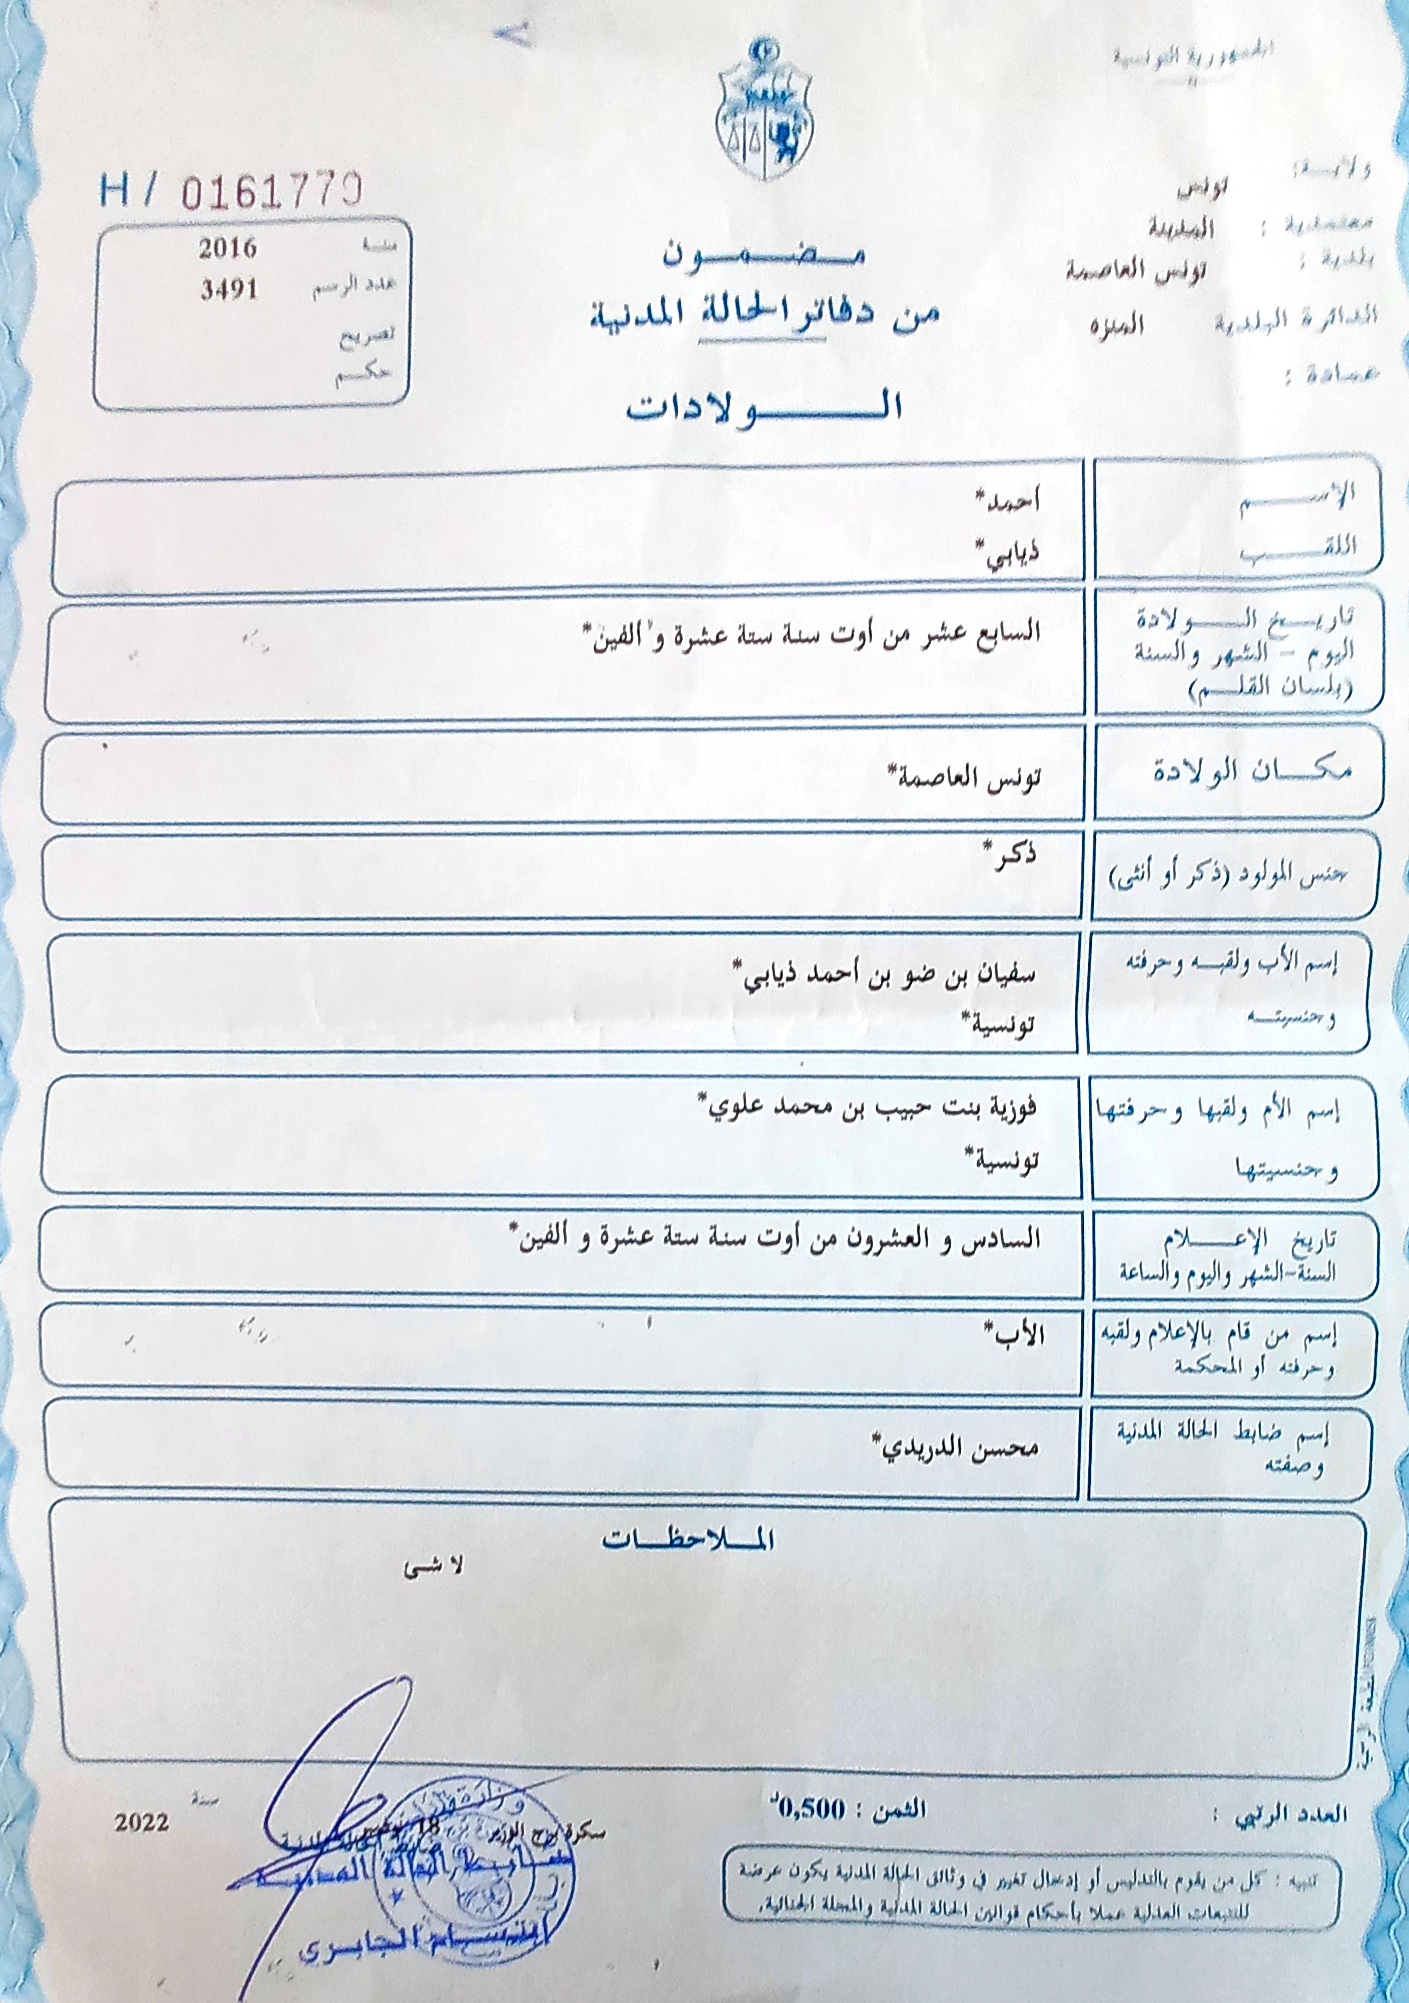 الجمهورية التونسية
ولاية: تونس
معتمدية : المدينة
بلدية : تونس العاصمة
الدائرة البلدية المنزه
عمادة :
H / 0161770
سنة 2016
عدد الرسم 3491
تصريح
حكم
مضمون
من دفاتر الحالة المدنية
الولادات
الإسم أحمد*
اللقب ذيابي*
تاريخ الولادة
اليوم - الشهر والسنة
(بلسان القلم)
السابع عشر من أوت سنة ستة عشرة و ألفين*
مكان الولادة تونس العاصمة*
جنس المولود (ذكر أو أنثى) ذكر*
إسم الأب ولقبه وحرفته سفيان بن ضو بن أحمد ذيابي*
وجنسيته تونسية*
إسم الأم ولقبها وحرفتها فوزية بنت حبيب بن محمد علوي*
وجنسيتها تونسية*
تاريخ الإعلام السادس و العشرون من أوت سنة ستة عشرة و ألفين*
السنة-الشهر واليوم والساعة
إسم من قام بالإعلام ولقبه الأب*
وحرفته أو المحكمة
إسم ضابط الحالة المدنية محسن الدريدي*
وصفته
الملاحظات
لا شى
العدد الرتبي :
الثمن : 0,500د
سكرة برج الوزير 18 سنة 2022
ضابط الحالة المدنية
الجابري
تنبيه : كل من يقوم بالتدليس أو إدخال تغيير في وثائق الحالة المدنية يكون عرضة
للتتبعات العدلية عملا بأحكام قوانين الحالة المدنية والمجلة الجنائية.